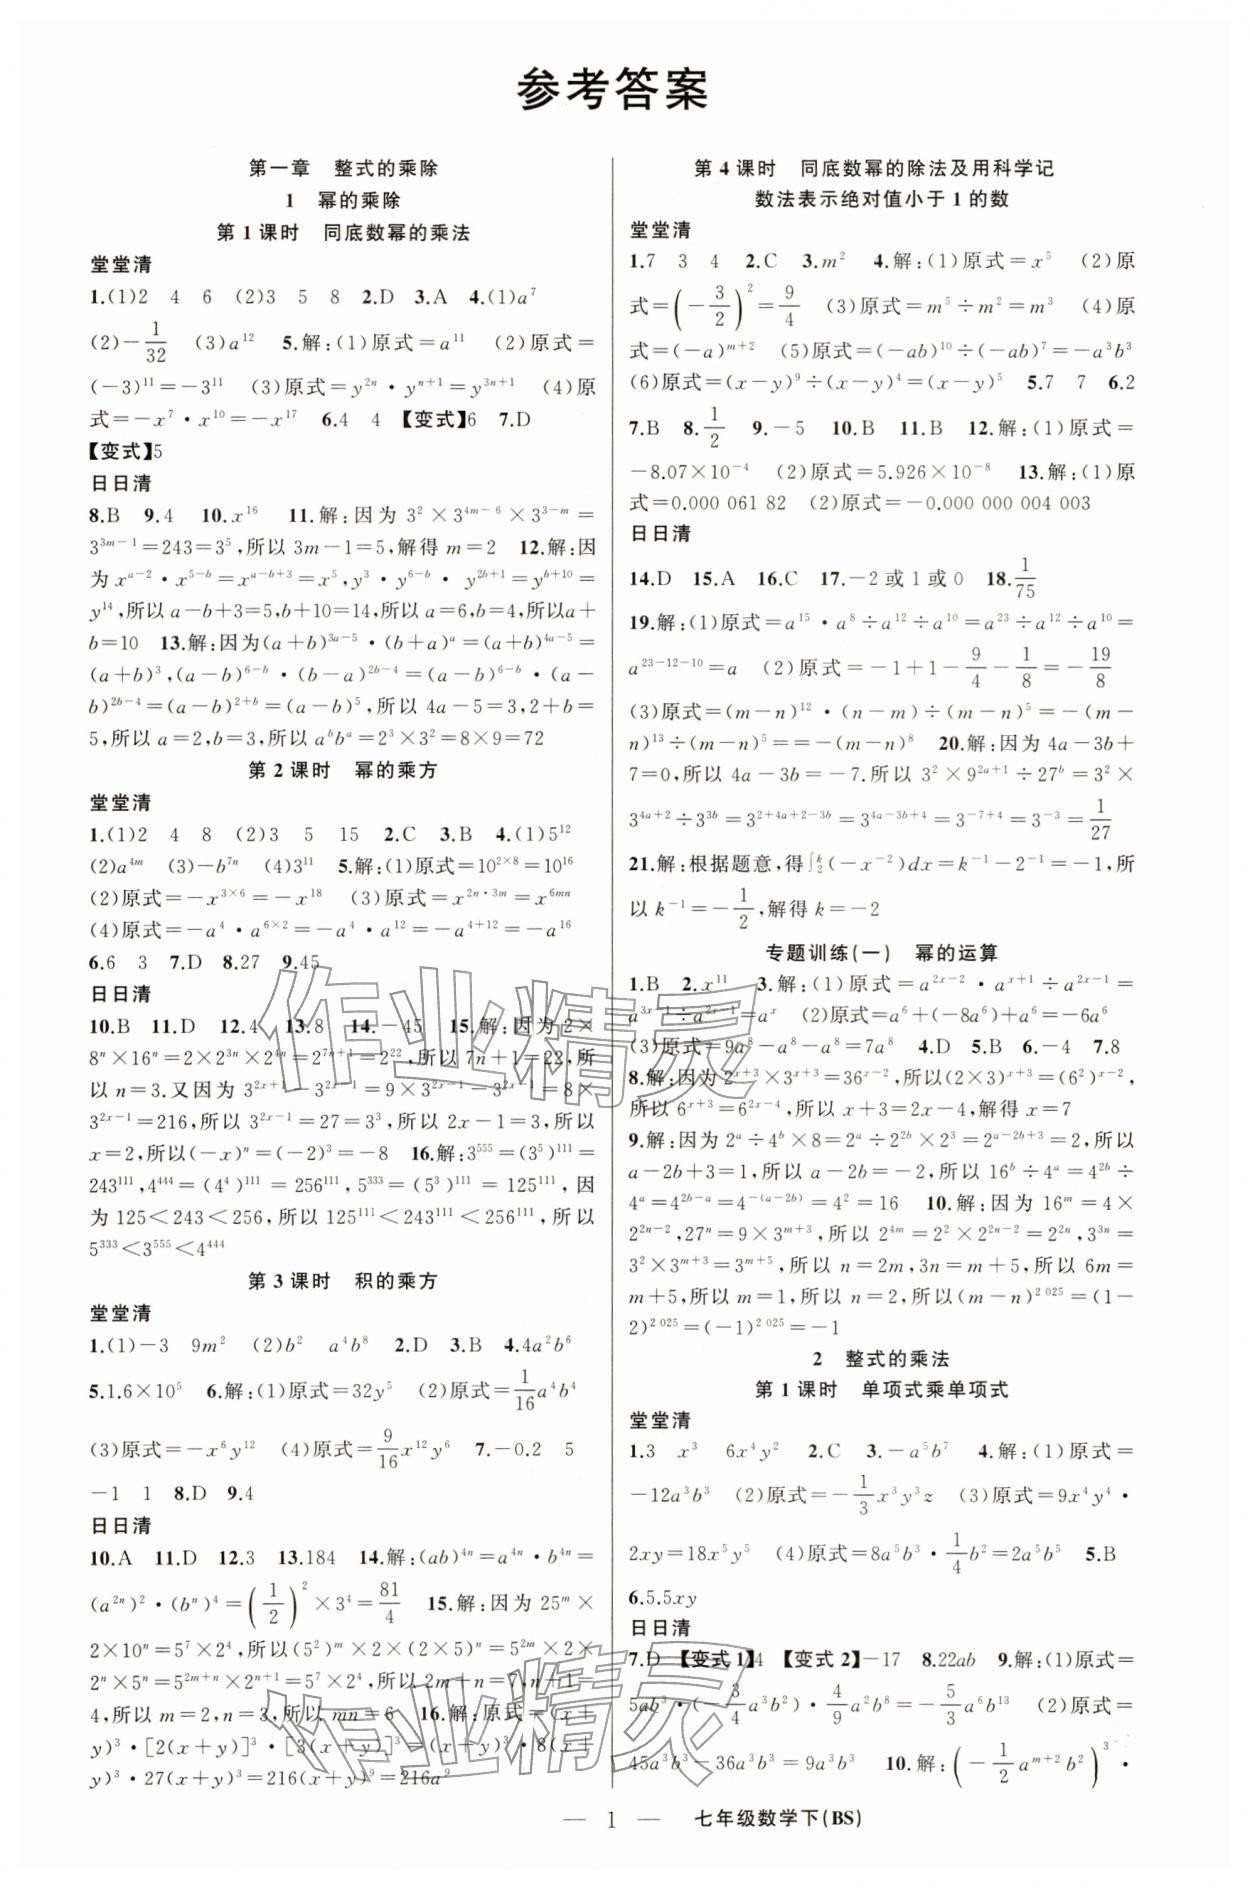 参考答案
第一章　整式的乘除
1　幂的乘除
第1课时　同底数幂的乘法
堂堂清
1.(1)2　4　6　(2)3　5　8　2.D　3.A　4.(1)a^7
(2)-1/32　(3)a^12　5.解:(1)原式=a^11　(2)原式=
(-3)^11=-3^11　(3)原式=y^2n·y^(n+1)=y^(3n+1)　(4)原
式=-x^7·x^10=-x^17　6.4　4　【变式】6　7.D
【变式】5
日日清
8.B　9.4　10.x^16　11.解:因为 3^2×3^(4m-6)×3^(3-m)=
3^(3m-1)=243=3^5,所以 3m-1=5,解得 m=2　12.解:因
为 x^(a-2)·x^(5-b)=x^(a-b+3)=x^5,y^3·y^(6-b)·y^(2b+1)=y^(b+10)=
y^14,所以 a-b+3=5,b+10=14,所以 a=6,b=4,所以a+
b=10　13.解:因为(a+b)^(3a-5)·(b+a)^a=(a+b)^(4a-5)=
(a+b)^3,(a-b)^(6-b)·(b-a)^(2b-4)=(a-b)^(6-b)·(a-
b)^(2b-4)=(a-b)^(2+b)=(a-b)^5,所以 4a-5=3,2+b=
5,所以 a=2,b=3,所以 a^b b^a=2^3×3^2=8×9=72
第2课时　幂的乘方
堂堂清
1.(1)2　4　8　(2)3　5　15　2.C　3.B　4.(1)5^12
(2)a^4m　(3)-b^7n　(4)3^11　5.解:(1)原式=10^(2×8)=10^16
(2)原式=-x^(3×6)=-x^18　(3)原式=x^(2n·3m)=x^6mn
(4)原式=-a^4·a^(6×2)=-a^4·a^12=-a^(4+12)=-a^16
6.6　3　7.D　8.27　9.45
日日清
10.B　11.D　12.4　13.8　14.-45　15.解:因为 2×
8^n×16^n=2×2^3n×2^4n=2^(7n+1)=2^22,所以 7n+1=22,所
以 n=3.又因为 3^(2x+1)-3^(2x-1)=9×3^(2x-1)-3^(2x-1)=8×
3^(2x-1)=216,所以 3^(2x-1)=27=3^3,所以 2x-1=3,所以
x=2,所以(-x)^n=(-2)^3=-8　16.解:3^555=(3^5)^111=
243^111,4^444=(4^4)^111=256^111,5^333=(5^3)^111=125^111,因
为 125<243<256,所以 125^111<243^111<256^111,所以
5^333<3^555<4^444
第3课时　积的乘方
堂堂清
1.(1)-3　9m^2　(2)b^2　a^4b^8　2.D　3.B　4.4a^2b^6
5.1.6×10^5　6.解:(1)原式=32y^5　(2)原式=1/16a^4b^4
(3)原式=-x^6y^12　(4)原式=9/16x^12y^6　7.-0.2　5
-1　1　8.D　9.4
日日清
10.A　11.D　12.3　13.184　14.解:(ab)^4n=a^4n·b^4n=
(a^2n)^2·(b^n)^4=(1/2)^2×3^4=81/4　15.解:因为 25^m×
2×10^n=5^7×2^4,所以(5^2)^m×2×(2×5)^n=5^2m×2×2^n
×5^n=5^(2m+n)×2^(n+1)=5^7×2^4,所以 2m+n=7,n+1=
4,所以 m=2,n=3,所以 mn=6　16.解:原式=(x+
y)^3·[2(x+y)]^3·[3(x+y)]^3=(x+y)^3·8(x+
y)^3·27(x+y)^3=216(x+y)^9=216a^9
第4课时　同底数幂的除法及用科学记
数法表示绝对值小于1的数
堂堂清
1.7　3　4　2.C　3.m^2　4.解:(1)原式=x^5　(2)原
式=(-3/2)^2=9/4　(3)原式=m^5÷m^2=m^3　(4)原
式=(-a)^(m+2)　(5)原式=(-ab)^10÷(-ab)^7=-a^3b^3
(6)原式=(x-y)^9÷(x-y)^4=(x-y)^5　5.7　7　6.2
7.B　8.1/2　9.-5　10.B　11.B　12.解:(1)原式=
-8.07×10^-4　(2)原式=5.926×10^-8　13.解:(1)原
式=0.000 061 82　(2)原式=-0.000 000 004 003
日日清
14.D　15.A　16.C　17.-2或1或0　18.1/75
19.解:(1)原式=a^15·a^8÷a^12÷a^10=a^23÷a^12÷a^10=
a^(23-12-10)=a　(2)原式=-1+1-9/4-1/8=-19/8
(3)原式=(m-n)^12·(n-m)÷(m-n)^5=-(m-
n)^13÷(m-n)^5==-(m-n)^8　20.解:因为 4a-3b+
7=0,所以 4a-3b=-7.所以 3^2×9^(2a+1)÷27^b=3^2×
3^(4a+2)÷3^3b=3^(2+4a+2-3b)=3^(4a-3b+4)=3^(-7+4)=3^-3=1/27
21.解:根据题意,得∫_2^k(-x^-2)dx=k^-1-2^-1=-1,所
以 k^-1=-1/2,解得 k=-2
专题训练(一)　幂的运算
1.B　2.x^11　3.解:(1)原式=a^(2x-2)·a^(x+1)÷a^(2x-1)=
a^(3x-1)÷a^(2x-1)=a^x　(2)原式=a^6+(-8a^6)+a^6=-6a^6
(3)原式=9a^8-a^8-a^8=7a^8　4.D　5.B　6.-4　7.8
8.解:因为2^(x+3)×3^(x+3)=36^(x-2),所以(2×3)^(x+3)=(6^2)^(x-2),
所以 6^(x+3)=6^(2x-4),所以 x+3=2x-4,解得 x=7
9.解:因为 2^a÷4^b×8=2^a÷2^2b×2^3=2^(a-2b+3)=2,所以
a-2b+3=1,所以 a-2b=-2,所以 16^b÷4^a=4^2b÷
4^a=4^(2b-a)=4^(-(a-2b))=4^2=16　10.解:因为 16^m=4×
2^(2n-2),27^n=9×3^(m+3),所以 2^4m=2^2×2^(2n-2)=2^2n,3^3n=
3^2×3^(m+3)=3^(m+5),所以 n=2m,3n=m+5,所以 6m=
m+5,所以 m=1,所以 n=2,所以(m-n)^2 025=(1-
2)^2 025=(-1)^2 025=-1
2　整式的乘法
第1课时　单项式乘单项式
堂堂清
1.3　x^3　6x^4y^2　2.C　3.-a^5b^7　4.解:(1)原式=
-12a^3b^3　(2)原式=-1/3x^3y^3z　(3)原式=9x^4y^4·
2xy=18x^5y^5　(4)原式=8a^5b^3·1/4b^2=2a^5b^5　5.B
6.5.5xy
日日清
7.D　【变式1】4　【变式2】-17　8.22ab　9.解:(1)原式=
5ab^3·(-3/4a^3b^2)·4/9a^2b^8=-5/3a^6b^13　(2)原式=
45a^3b^3-36a^3b^3=9a^3b^3　10.解:(-1/2a^(m+2)b^2)^3·
— 1 —　七年级数学下(BS)
作业精灵
作业精灵